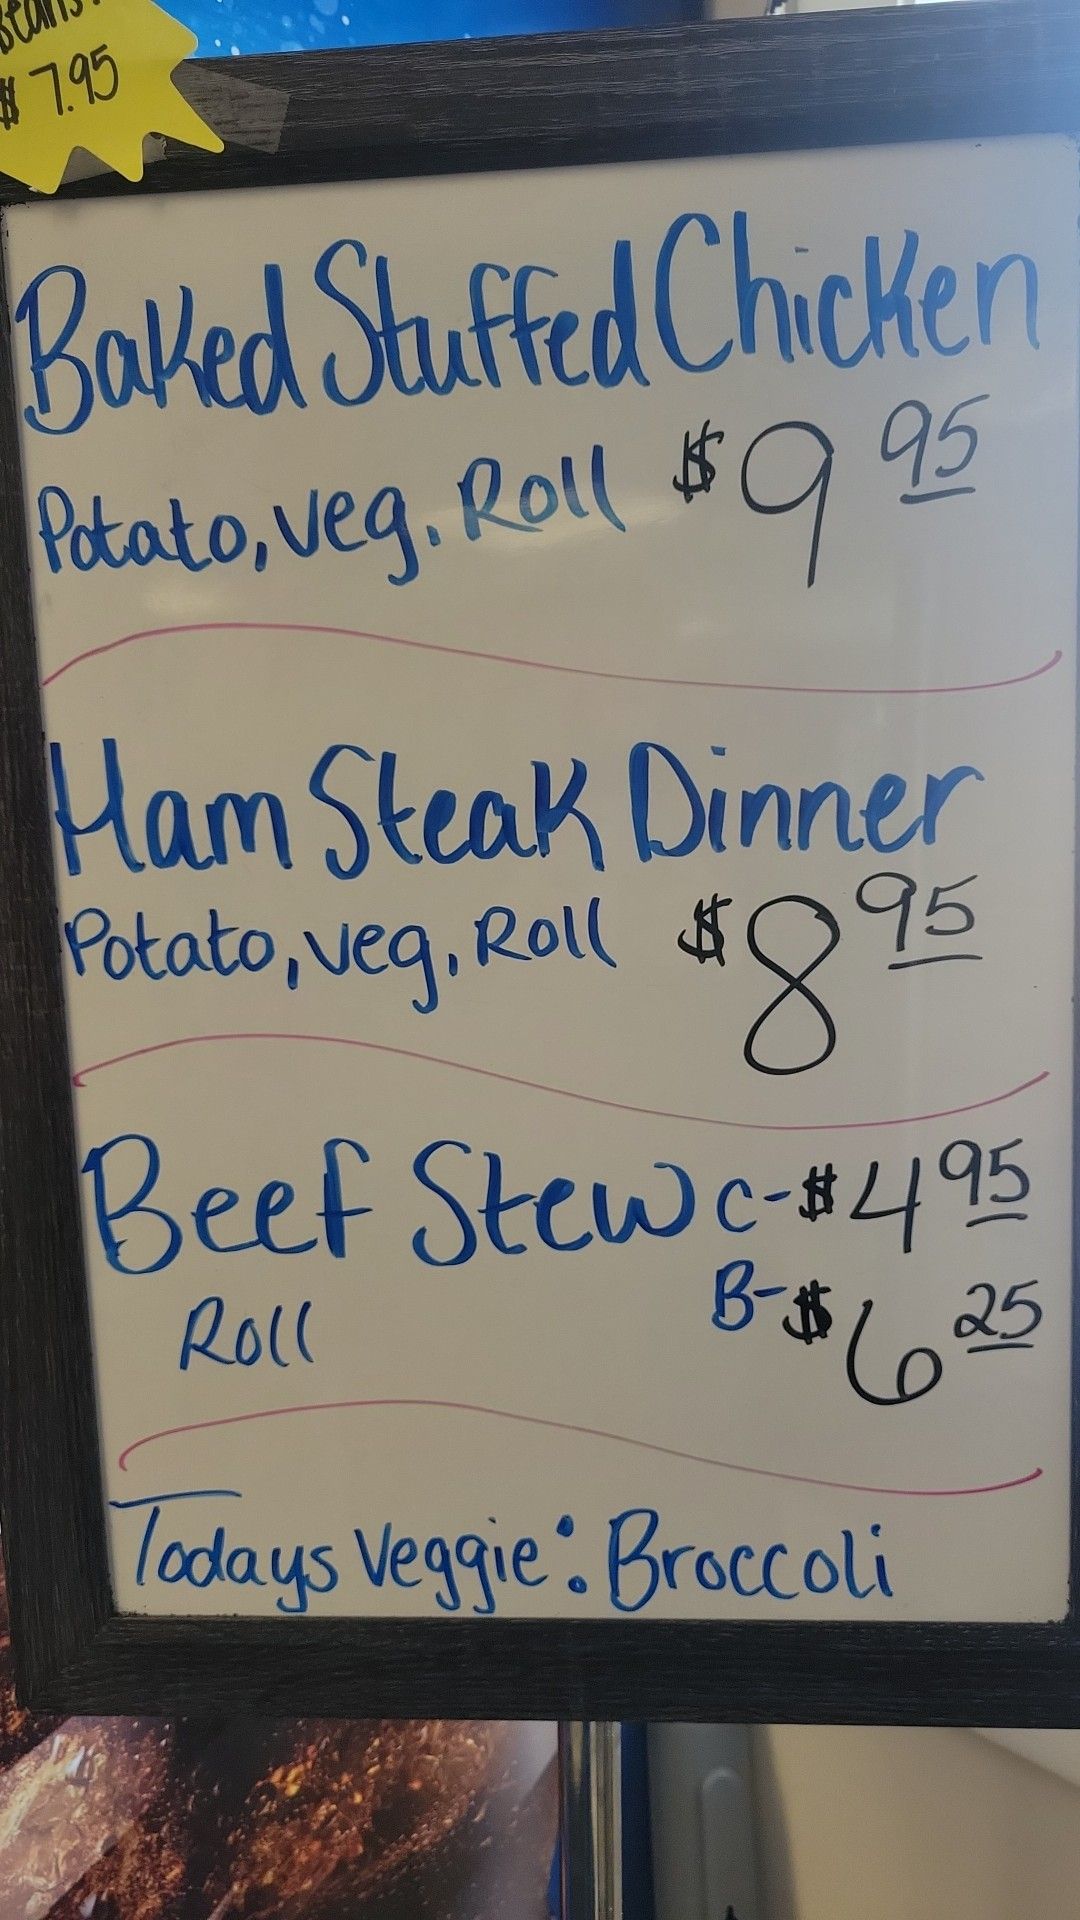 Beans
$ 7.95
Baked Stuffed Chicken
Potato, veg. Roll $9 95
Ham Steak Dinner
Potato, veg, Roll $8 95
Beef Stew C-$4 95
Roll B-$6 25
Todays Veggie: Broccoli